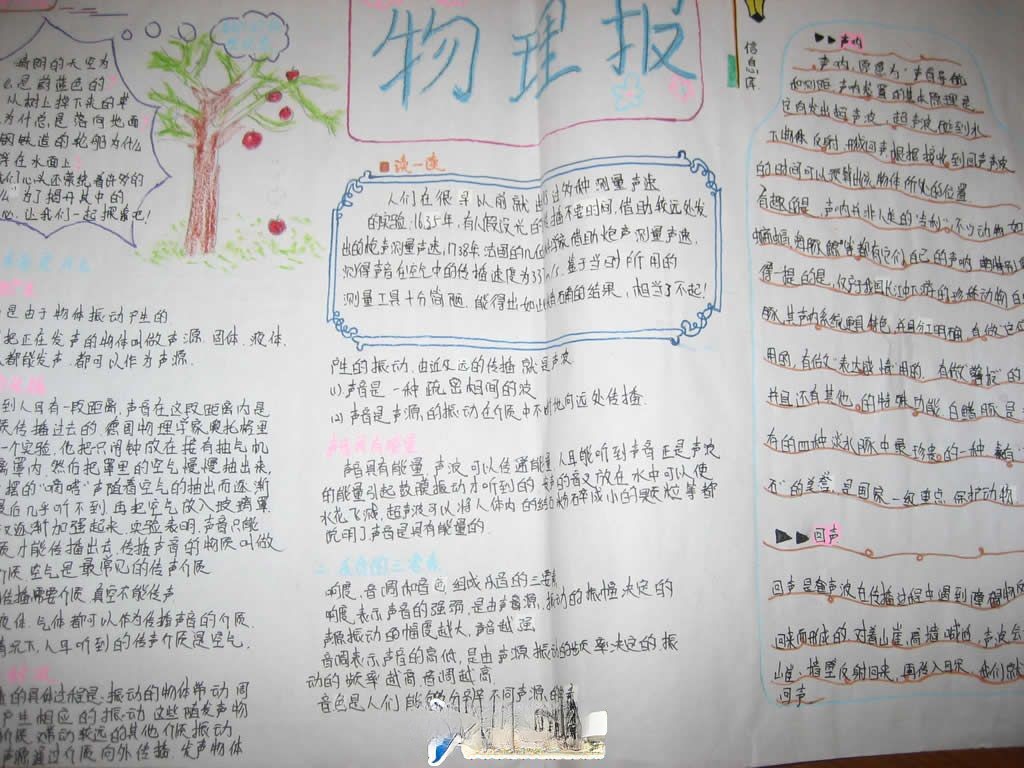 物理报
晴朗的天空为
么是蔚蓝色的
从树上掉下来的苹
为什总是落向地面
钢铁造的轮船为什么
浮在水面上
们心头还萦绕着许多的
么 为了揭开其中的
心 让我们一起探着吧!
是由于物体振动产生的
把正在发声的物体叫做声源.固体、液体、
都能发声.都可以作为声源.
传播
到人耳有一段距离,声音在这段距离内是
传播过去的 德国物理学家奥托格里
一个实验,他把只闹钟放在接有抽气机
罩内,然后把罩里的空气慢慢抽出来,
摆的"嘀嗒"声随着空气的抽出而逐渐
最后几乎听不到 再把空气放入玻璃罩
又逐渐加强起来,实验表明,声音只能
才能传播出去.传播声音的物质叫做
介质 空气是最常见的传声介质
传播需要介质,真空不能传声
液体、气体都可以作为传播声音的介质.
情况下,人耳听到的传声介质是空气.
的具体过程是:振动的物体带动周
产生相应的振动 这些随发声物
介质 带动较远的其他介质振动
声源通过介质向外传播.发声物体
读一读
人们在很早以前就出过各种测量声速
的实验.1635年,有人假设光的传播不要时间,借助较远处发
出的炮声测量声速,1738年,法国的几位 借助炮声测量声速.
测得声音在空气中的传播速度为337m/s.鉴于当时所用的
测量工具十分简陋.能得出如此精确的结果,相当了不起!
产生的振动.由近及远的传播就是声波
(1).声音是一种疏密相间的波
(2)声音是声源的振动在介质中不断地向远处传播.
声音具有能量
声音具有能量.声波可以传递能量 人耳能听到声音正是声波
的能量引起鼓膜振动才听到的 发声的音叉放在水中可以使
水花飞溅.超声波可以将人体内的结石粉碎成小的颗粒等都
说明了声音是具有能量的.
二 乐音的三要素
响度、音调和音色组成乐音的三要素
响度:表示声音的强弱,是由声音源振动的振幅决定的
声源振动的幅度越大,声音越强
音调表示声音的高低,是由声源振动的频率决定的.振
动的频率越高音调越高
音色是人们能够分辨不同声源的
信息库
声呐
声呐,原意为:声音导航
和测距,声呐装置的基本原理是
定向发出超声波,超声波碰到水
下物体反射,形成回声,根据接收到回声声波
的时间可以测算出该物体所处的位置
有趣的是,声呐并非人类的"专利"不少动物如
蝙蝠海豚鲸 都有它们自己的声呐
得一提的是,仅为我国长江中下游的珍稀动物白
豚,其声呐系统 性能 并且分工明确,有做定位
用的,有做"表达感情"用的,有做"警报"的
并且还有其他的特殊功能 白鳍豚是
有的四种淡水豚中最珍贵的一种 素有
的美誉.是国家一级重点保护动物
回声
回声是当声波在传播过程中遇到障碍物反
回来而形成的 对着山崖,高墙喊叫,声波会
山崖、墙壁反射回来,再传入耳朵,我们就
回声